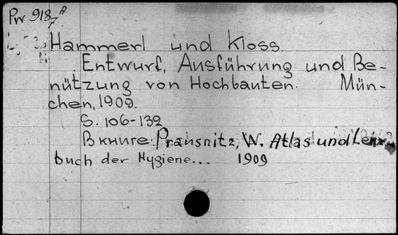 Pw 918
Hammerl und Kloss.
Entwurf, Ausführung und Be-
nützung von Hochbauten. Mün-
chen, 1909.
S. 106-132
В книге: Prausnitz, W. Atlas und Lehr
buch der Hygiene... 1909